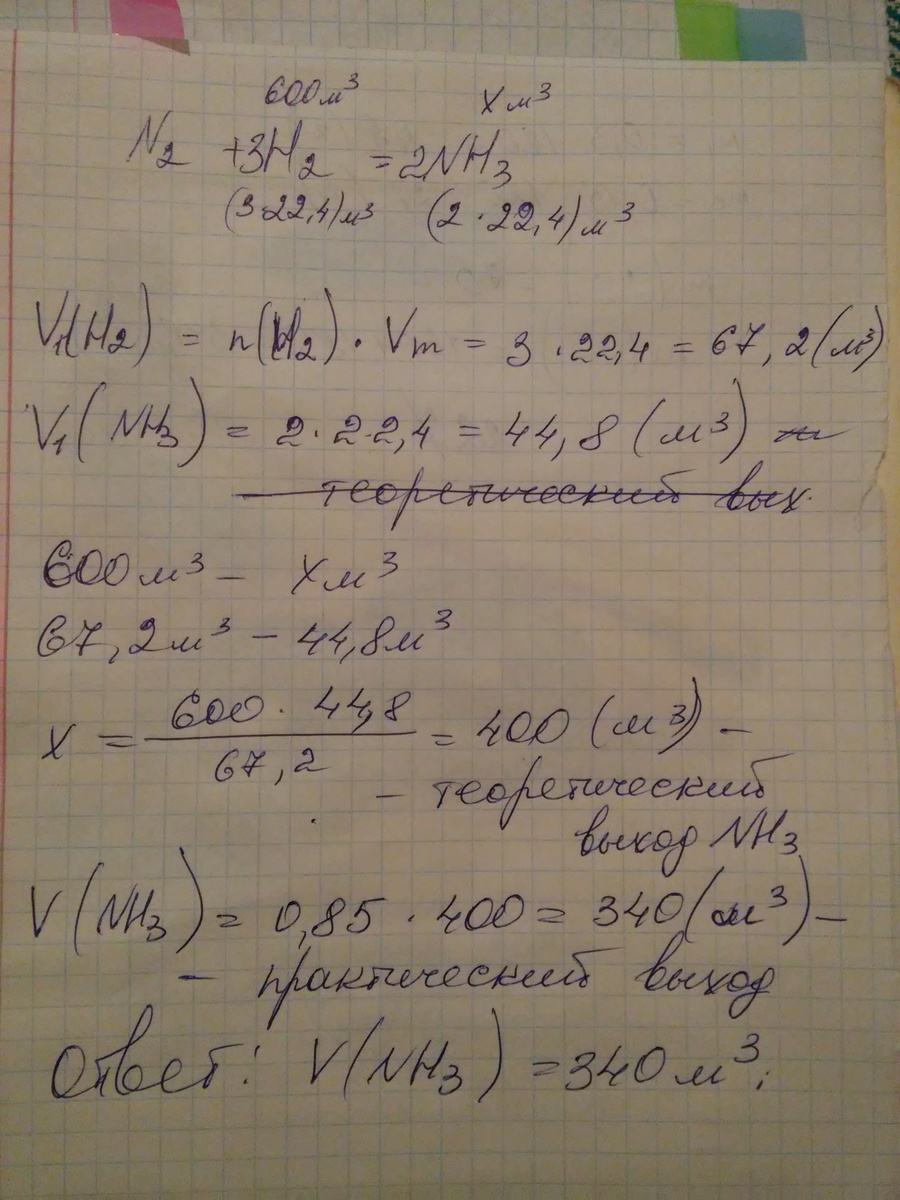 600 м³ x м³
N₂ + 3H₂ = 2NH₃
(3·22,4) м³ (2·22,4) м³
V₁(H₂) = n(H₂) · Vm = 3 · 22,4 = 67,2 (м³)
V₁(NH₃) = 2 · 22,4 = 44,8 (м³)
— теоретический вых.
600 м³ – x м³
67,2 м³ – 44,8 м³
x = 600 · 44,8 / 67,2 = 400 (м³) –
– теоретический
выход NH₃
V(NH₃) = 0,85 · 400 = 340 (м³) –
– практический выход
Ответ: V(NH₃) = 340 м³;